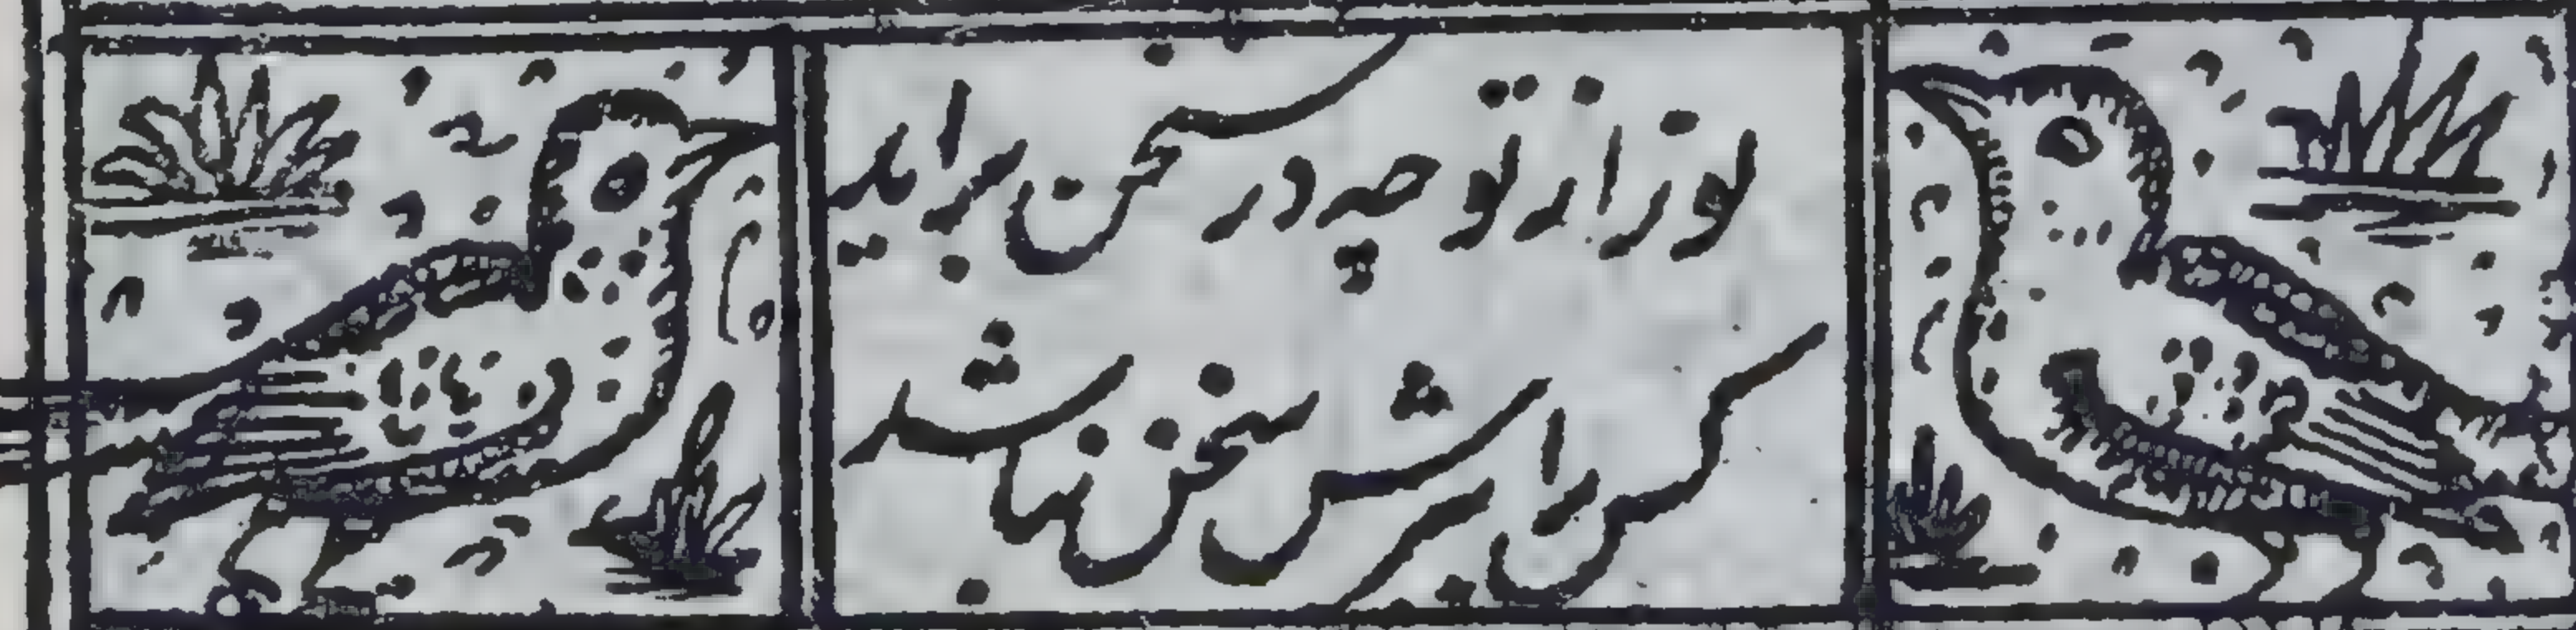 نور از تو چه در سخن براید
کس را برش سخن نباشد